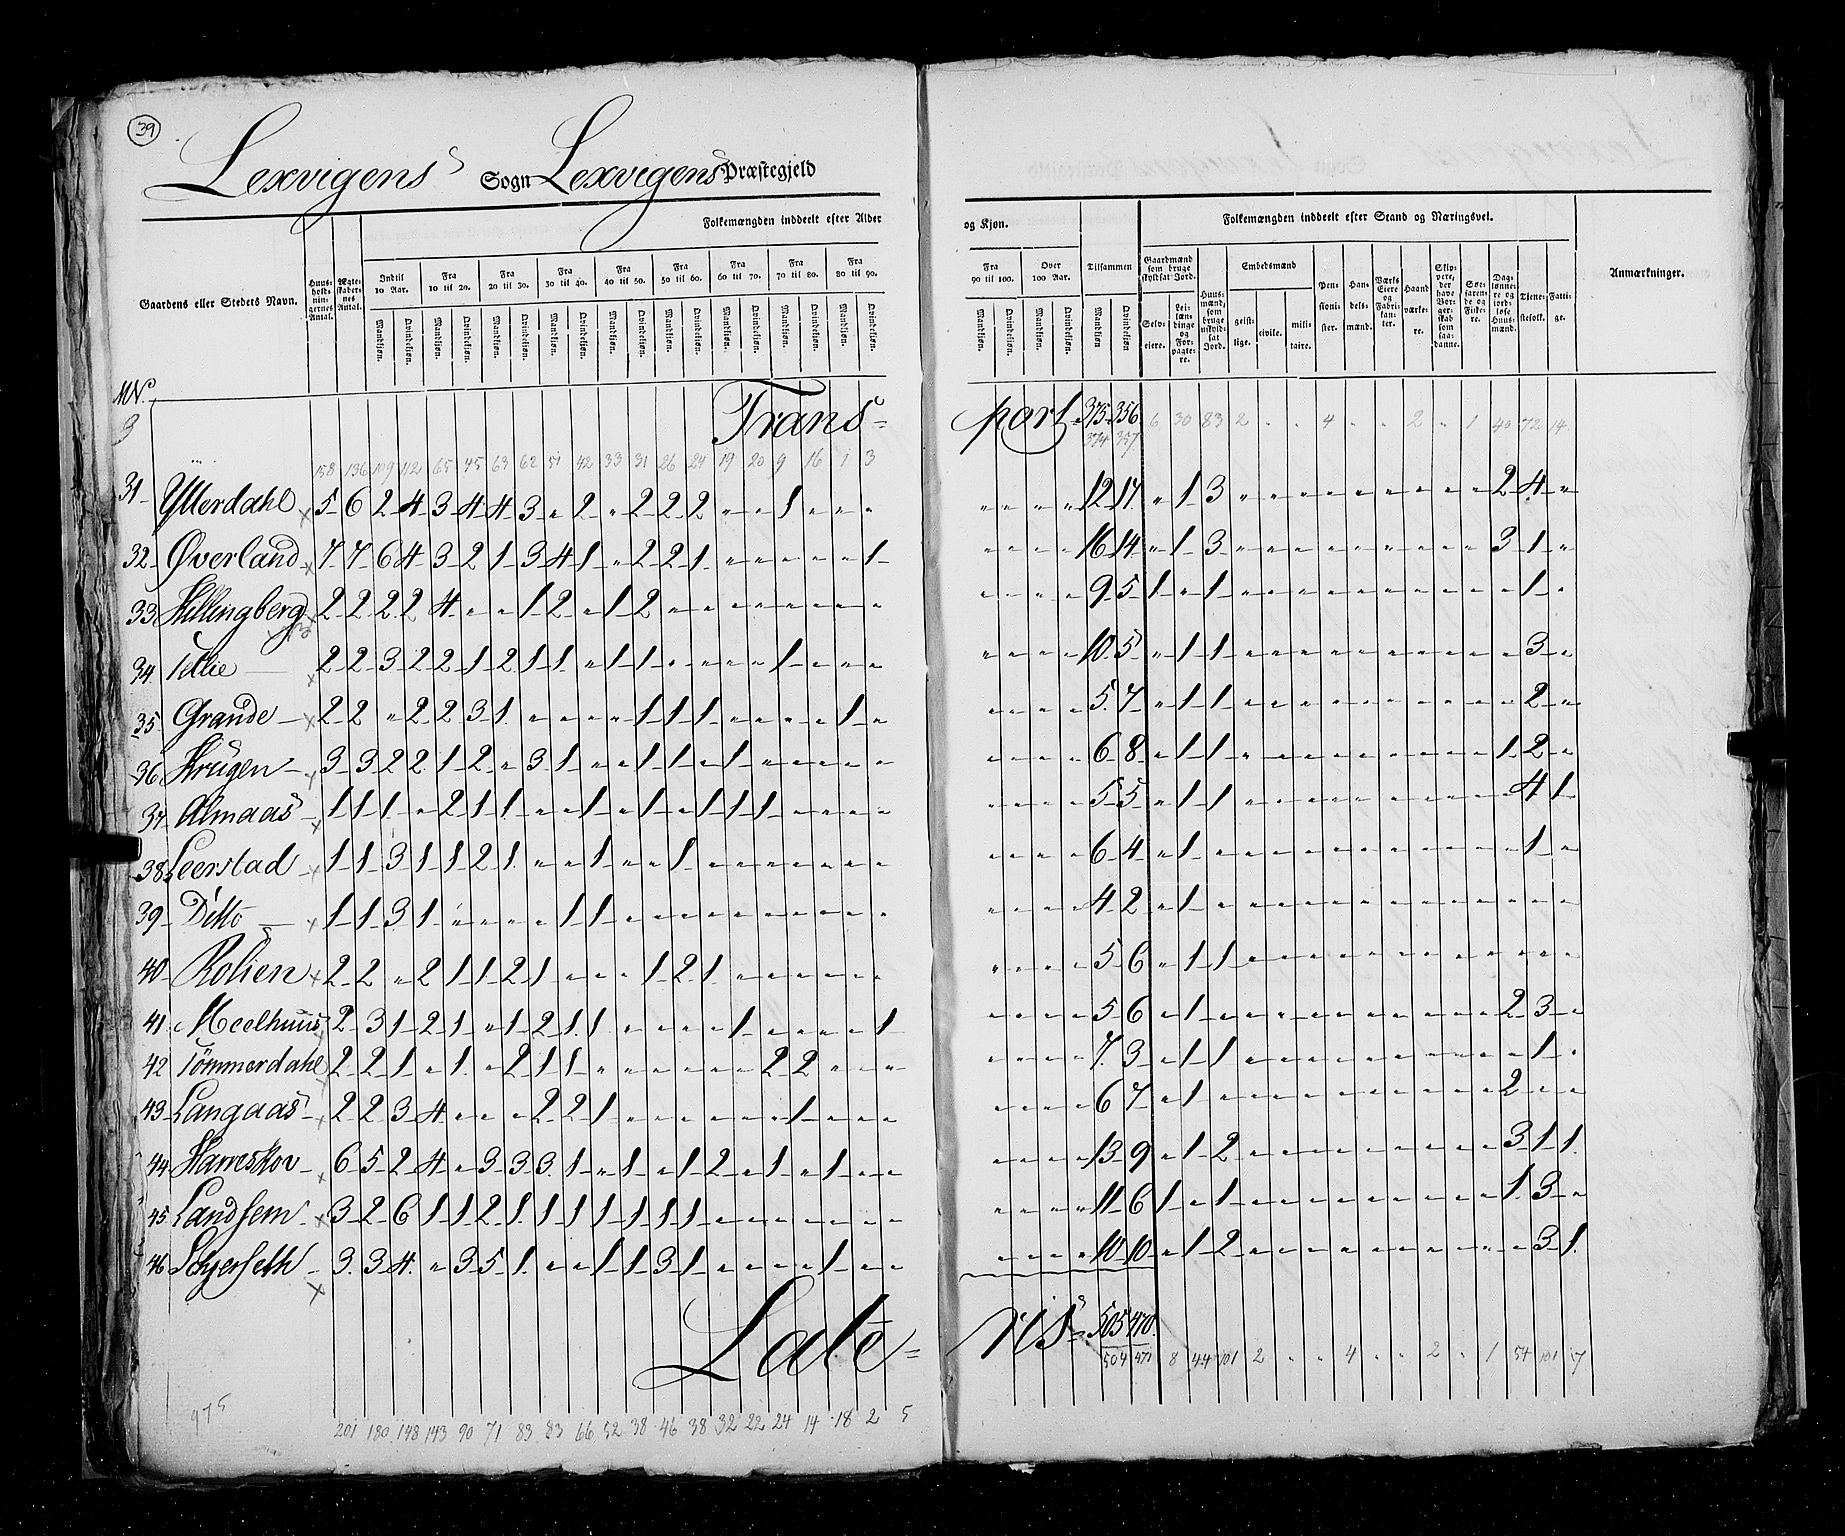 39
Lexvigens Sogn Lexvigens Præstegjeld
Folkemængden inddeelt efter Alder og Kjøn. Folkemængden inddeelt efter Stand og Næringsvei.
Gaardens eller Stedets Navn. Huus-holdnin-gernes Antal. Ægte-skaber-nes Antal. Indtil 10 Aar. Fra 10 til 20. Fra 20 til 30. Fra 30 til 40. Fra 40 til 50. Fra 50 til 60. Fra 60 til 70. Fra 70 til 80. Fra 80 til 90. Fra 90 til 100. Over 100 Aar. Tilsammen Gaardmænd som bruge skyldsat Jord. Huus-mænd, som bruge uskyld-sat Jord. Embedsmænd Pen-sioni-ster. Han-dels-mænd. Værks Eiere og Fabri-kan-ter. Haand værke-re. Skip-pere, der have Bor-ger-skab som saa-danne. Søe-faren-de og Fiske-re. Dag-lønne-re og jord-løse Huus-mænd. Tjene-stefolk. Fatti-ge. Anmærkninger.
Mandkjøn. Qvindekjøn. Selv-eiere. Lei-læn-dinge og For-pagte-re. geist-lige. civile. mili-taire.
MN.
9
Trans-port 375 356
374 357 6 30 83 2 " " 4 " " 2 " 1 40 72 14
158 136 109 112 65 45 63 62 51 42 33 31 26 24 19 20 9 16 1 3
31 Ytterdahl 5 6 2 4 3 4 4 3 " 2 " 2 2 2 " " 1 " " " " " " " 12 17 " 1 3 " " " " " " " " " 2 4 "
32 Øverland 7 7 6 4 3 2 1 3 4 1 " 2 2 1 " " " " " 1 " " " " 16 14 " 1 3 " " " " " " " " " 3 1 "
33 Hellingberg 2 2 2 2 4 " " 1 2 " 1 2 " " " " " " " " " " " " 9 5 1 " 1 " " " " " " " " " " 1 "
34 Tellie 2 2 3 2 2 1 2 1 1 " 1 1 " " " " 1 " " " " " " " 10 5 " 1 1 " " " " " " " " " " 3 "
35 Grande 2 2 " 2 2 3 1 " " " " 1 1 1 " " " " 1 " " " " " 5 7 " 1 1 " " " " " " " " " " 2 "
36 Krügen 3 3 2 2 1 2 " 3 1 " " 1 1 " 1 " " " " " " " " " 6 8 " 1 1 " " " " " " " " " 1 2 "
37 Almaas 1 1 1 " 2 1 1 " " 1 " 1 " 1 1 1 " " " " " " " " 5 5 " 1 1 " " " " " " " " " " 4 1
38 Leerstad 1 1 3 1 1 2 1 " " 1 " " 1 " " " " " " " " " " " 6 4 " 1 " " " " " " " " " " " 1 "
39 Ditto 1 1 3 1 " " " " 1 1 " " " " " " " " " " " " " " 4 2 " 1 " " " " " " " " " " " " "
40 Rolien 2 2 " 2 1 1 2 1 " " " 1 2 1 " " " " " " " " " " 5 6 " 1 1 " " " " " " " " " " " "
41 Meelhuus 2 3 1 2 1 " 1 2 1 1 " " " " 1 " " " " 1 " " " " 5 6 " 1 " " " " " " " " " " 2 3 "
42 Tömmerdahl 2 2 1 " 1 " 2 1 1 " " " " " " " 2 2 " " " " " " 7 3 " 1 1 " " " " " " " " " " 1 "
43 Langaas 2 2 3 4 " " " 2 2 1 " " " " " " 1 " " " " " " " 6 7 " 1 " " " " " " " " " " 2 " "
44 Harreskov 6 5 2 4 " 3 3 3 1 " 1 " 1 2 " 1 " 1 " " " " " " 13 9 " 1 2 " " " " " " " " " 3 1 1
45 Landsem 3 2 6 1 1 2 1 1 1 1 1 1 1 " " " " " " " " " " " 11 6 1 " 1 " " " " " " " " " 1 3 "
46 Schjerseth 3 3 4 " 3 5 1 " " 1 1 3 1 " " " " 1 " " " " " " 10 10 " 1 2 " " " " " " " " " " 3 1
Late-ris 505 470
504 471 8 44 101 2 " " 4 " " 2 " 1 54 101 17
975
201 180 148 143 90 71 83 83 66 52 38 46 38 32 22 24 14 18 2 5